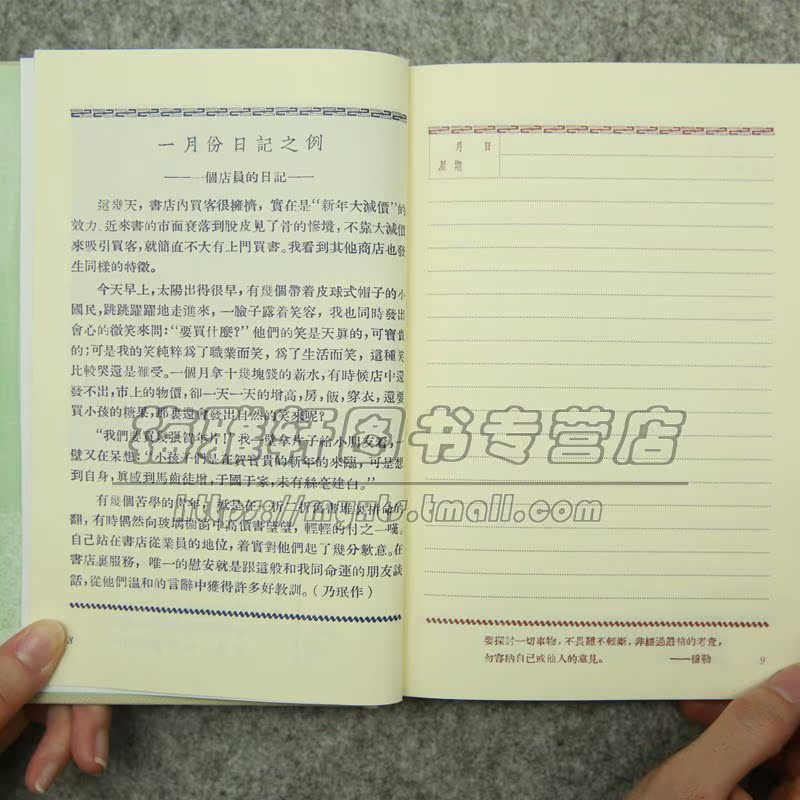 一月份日記之例
——一個店員的日記——
這幾天，書店內買客很擁擠，實在是“新年大減價”的
效力、近來書的市面衰落到脫皮見了骨的慘境，不靠大減價
來吸引買客，就簡直不大有上門買書。我看到其他商店也發
生同樣的特徵。
今天早上，太陽出得很早，有幾個帶着皮球式帽子的小
國民，跳跳躍躍地走進來，一臉子露着笑容，我也同時發出
會心的微笑來問：“要買什麼？”他們的笑是天眞的，可寶貴
的；可是我的笑純粹爲了職業而笑，爲了生活而笑，這種笑
比較哭還是難受。一個月拿十幾塊錢的薪水，有時候店中還
發不出，市上的物價，卻一天一天的增高，房，飯，穿衣，還要
買小孩的糖果，那裏還會發出自然的笑來呢？
“我們要買幾張賀年片！”我一壁拿片子給小朋友看，一
壁又在呆想：“小孩子們應在賀寶貴的新年的來臨，可是想
到自身，眞感到馬齒徒增，于國于家，未有絲毫建白。”
有幾個苦學的靑年，
翻，有時偶然向玻璃櫥窗中高價書望望，輕輕的付之一嘆。
自己站在書店從業員的地位，着實對他們起了幾分歉意。在
書店裏服務，唯一的慰安就是跟這般和我同命運的朋友談
話，從他們溫和的言辭中獲得許多好教訓。（乃珉作）
8
月 日
星期
要探討一切事物，不畏難不輕斷，非經過嚴格的考查，
勿容納自己或他人的意見。 ——穆勒
9
圖书专营店
https://myxts.tmall.com